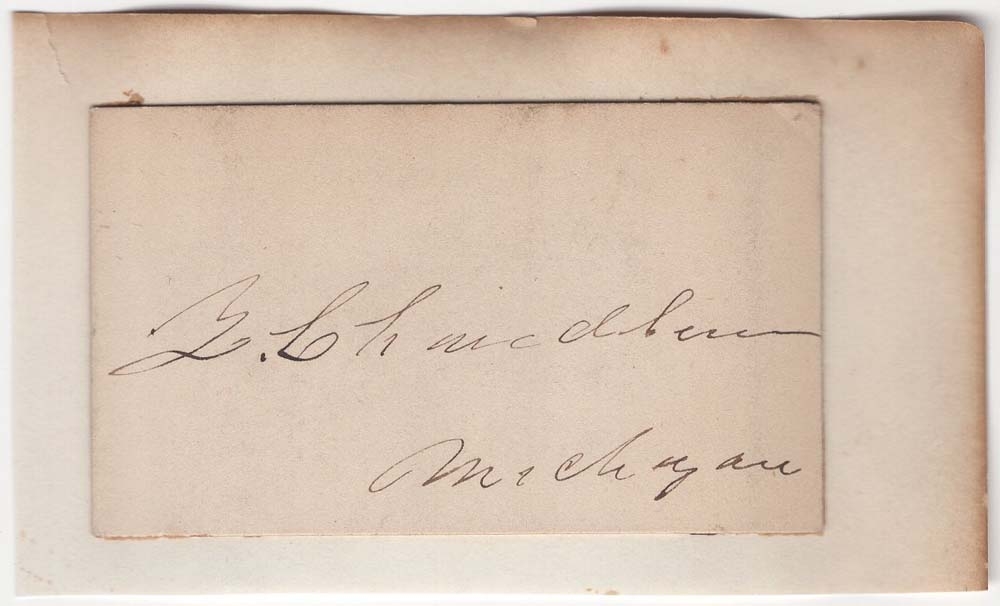 Z. Chandler
Michigan